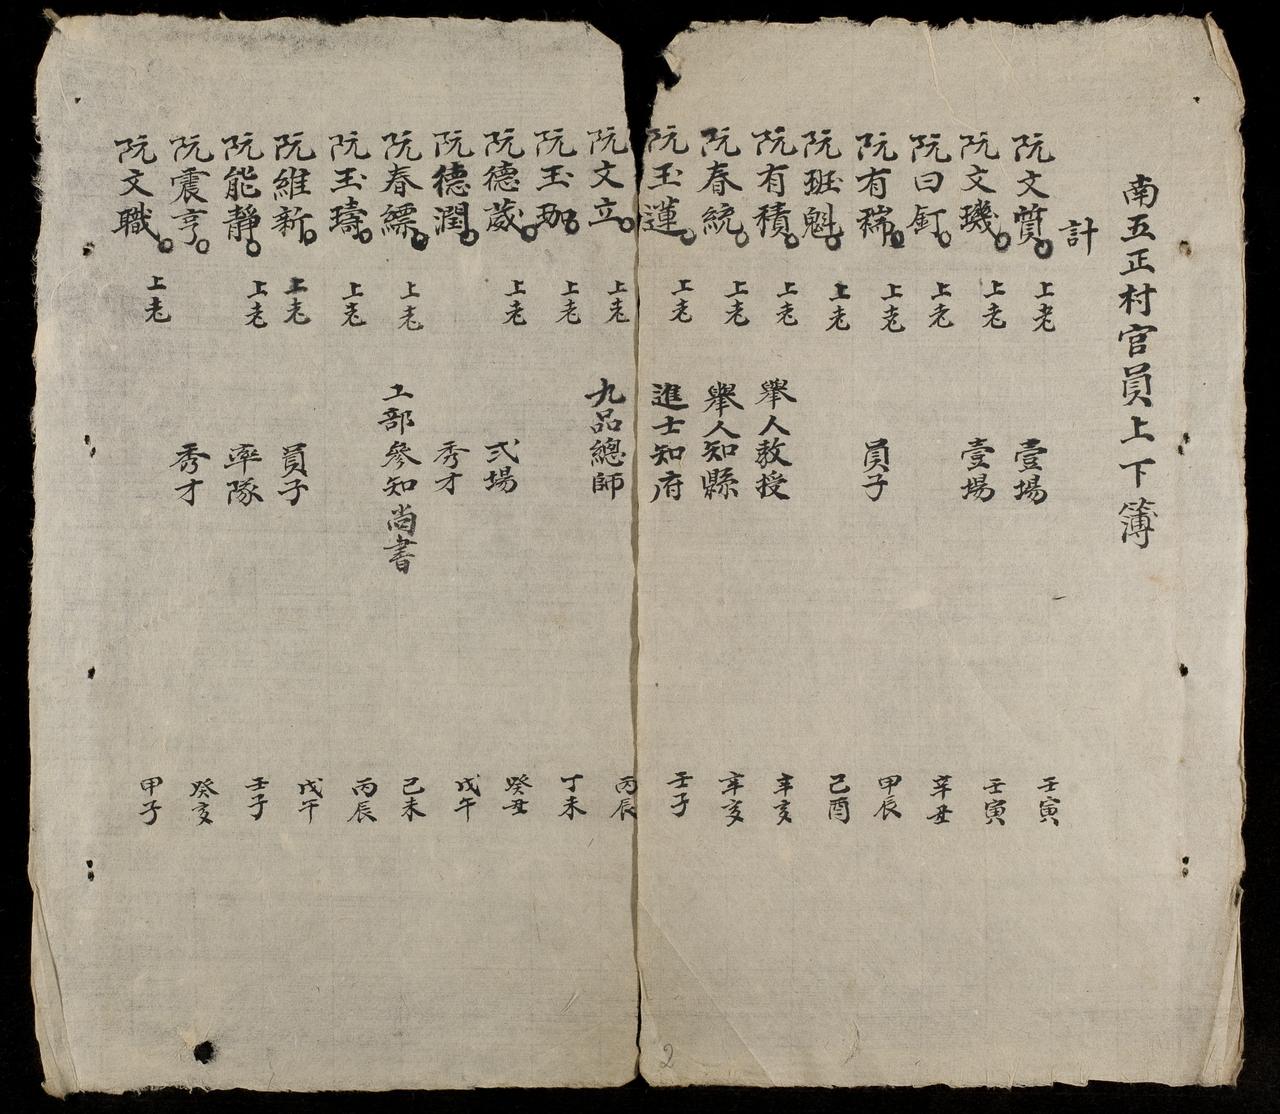 南五正村官員上下簿
計
阮文質 上老 壹場 壬寅
阮文璣 上老 壹場 壬寅
阮曰釘 上老 辛丑
阮有瑞 上老 員子 甲辰
阮班魁 上老 己酉
阮有積 上老 舉人教授 辛亥
阮春統 上老 舉人知縣 辛亥
阮玉蓮 上老 進士知府 壬子
阮文立 上老 九品總師 丙辰
阮玉珈 上老 丁未
阮德葳 上老 弍場 癸丑
阮德潤 秀才 戊午
阮春縹 上老 工部參知尚書 己未
阮玉璹 上老 丙辰
阮維新 上老 員子 戊午
阮能靜 上老 率隊 壬子
阮震亨 秀才 癸亥
阮文職 上老 甲子
2